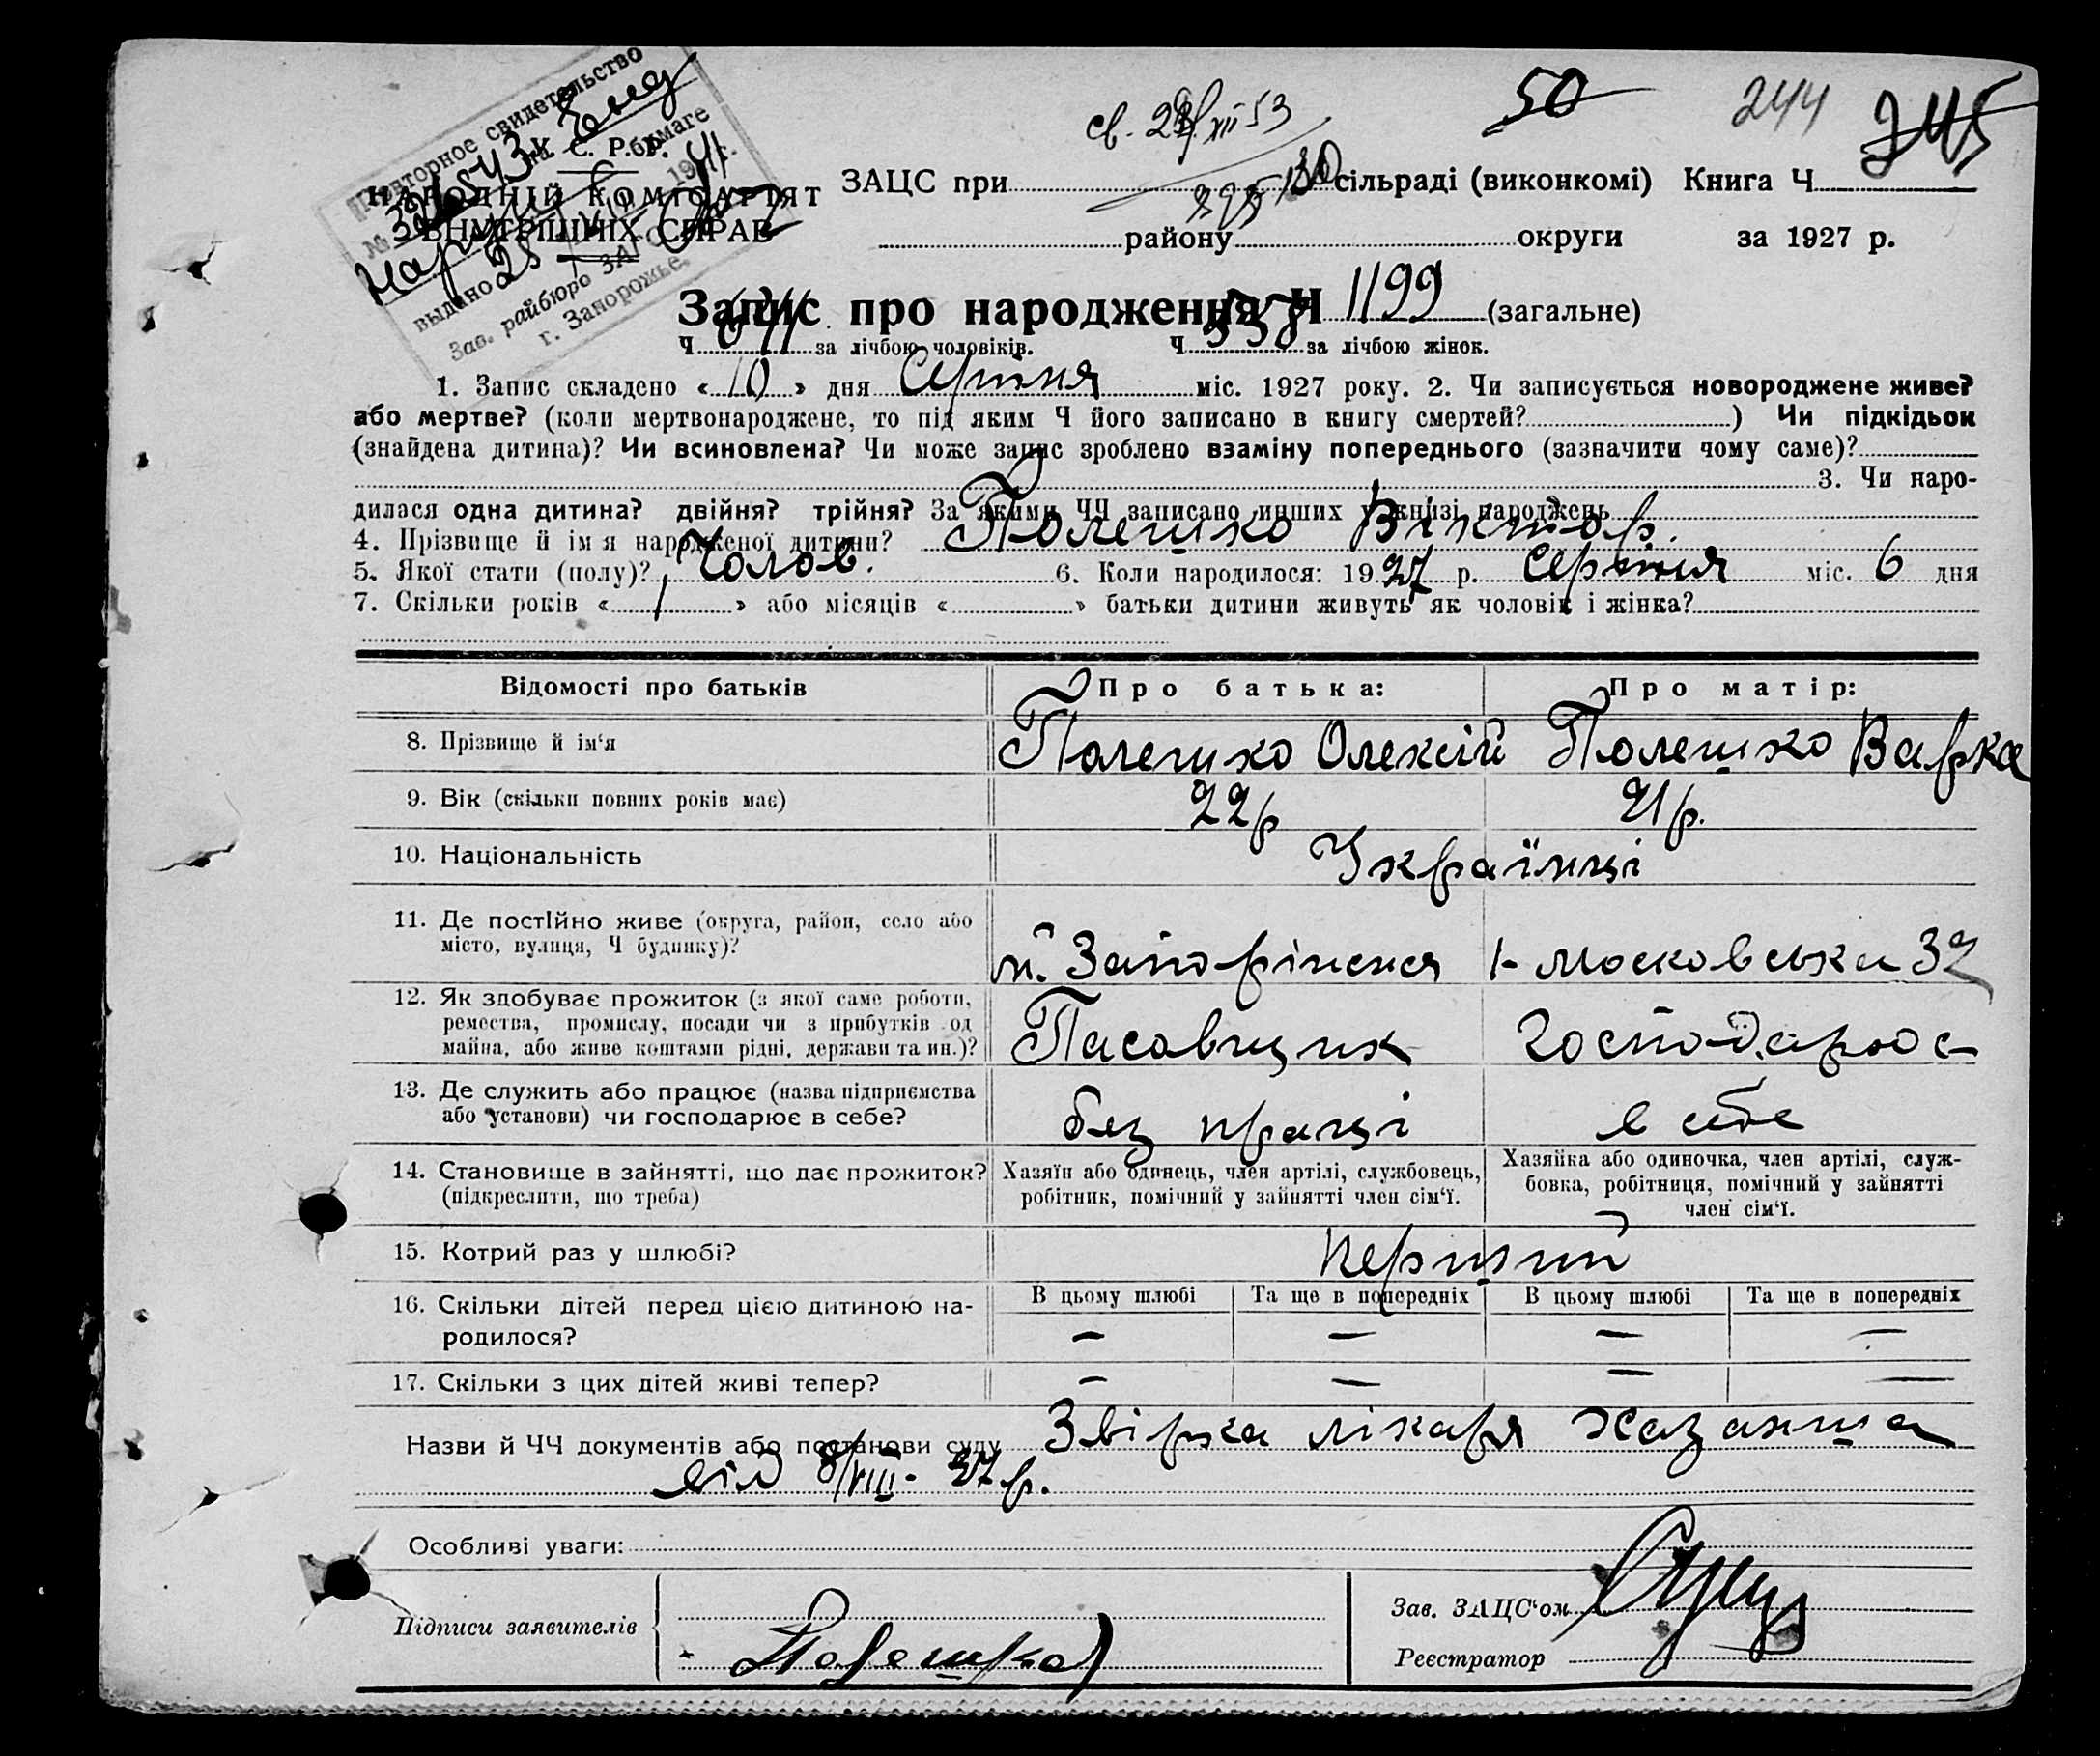 Повторное свидетельство
на бумаге
выдано 25
Зав. райбюро ЗАГС
г. Запорожье.
У. С. Р. Р.
НАРОДНІЙ КОМІСАРІЯТ
ВНУТРІШНІХ СПРАВ
50 244 245
ЗАЦС при сільраді (виконкомі) Книга Ч
району округи за 1927 р.
Запис про народження Ч 1199 (загальне)
Ч 641 за лічбою чоловіків. Ч 558 за лічбою жінок.
1. Запис складено « 10 » дня Серпня міс. 1927 року. 2. Чи записується новороджене живе?
або мертве? (коли мертвонароджене, то під яким Ч його записано в книгу смертей? ) Чи підкідьок
(знайдена дитина)? Чи всиновлена? Чи може запис зроблено взаміну попереднього (зазначити чому саме)?
3. Чи наро-
дилася одна дитина? двійня? трійня? За якими ЧЧ записано инших у книзі народжень
4. Прізвище й ім я народженої дитини? Полешко Віктор.
5. Якої стати (полу)? Чолов. 6. Коли народилося: 1927 р. Серпня міс. 6 дня
7. Скільки років « 1 » або місяців « » батьки дитини живуть як чоловік і жінка?
Відомості про батьків Про батька: Про матір:
8. Прізвище й ім‘я Полешко Олексій Полешко Варка
9. Вік (скільки повних років має) 22р 21р.
10. Національність Українці
11. Де постійно живе (округа, район, село або
місто, вулиця, Ч будинку)? м. Запоріжжя Московська 32
12. Як здобуває прожиток (з якої саме роботи,
ремества, промислу, посади чи з прибутків од
майна, або живе коштами рідні, держави та ин.)? Господарює
13. Де служить або працює (назва підприємства
або установи) чи господарює в себе? без праці в себе
14. Становище в зайнятті, що дає прожиток? Хазяїн або одинець, член артілі, службовець, Хазяйка або одиночка, член артілі, служ-
(підкреслити, що треба) робітник, помічний у зайнятті член сім‘ї. бовка, робітниця, помічний у зайнятті
член сім‘ї.
15. Котрий раз у шлюбі? перший
16. Скільки дітей перед цією дитиною на- В цьому шлюбі Та ще в попередніх В цьому шлюбі Та ще в попередніх
родилося? — — — —
17. Скільки з цих дітей живі тепер? — — — —
Назви й ЧЧ документів або постанови суду Звірка лікаря
від 8/VIII- 27 р.
Особливі уваги:
Зав. ЗАЦС‘ом
Підписи заявителів
Полешко
Реєстратор